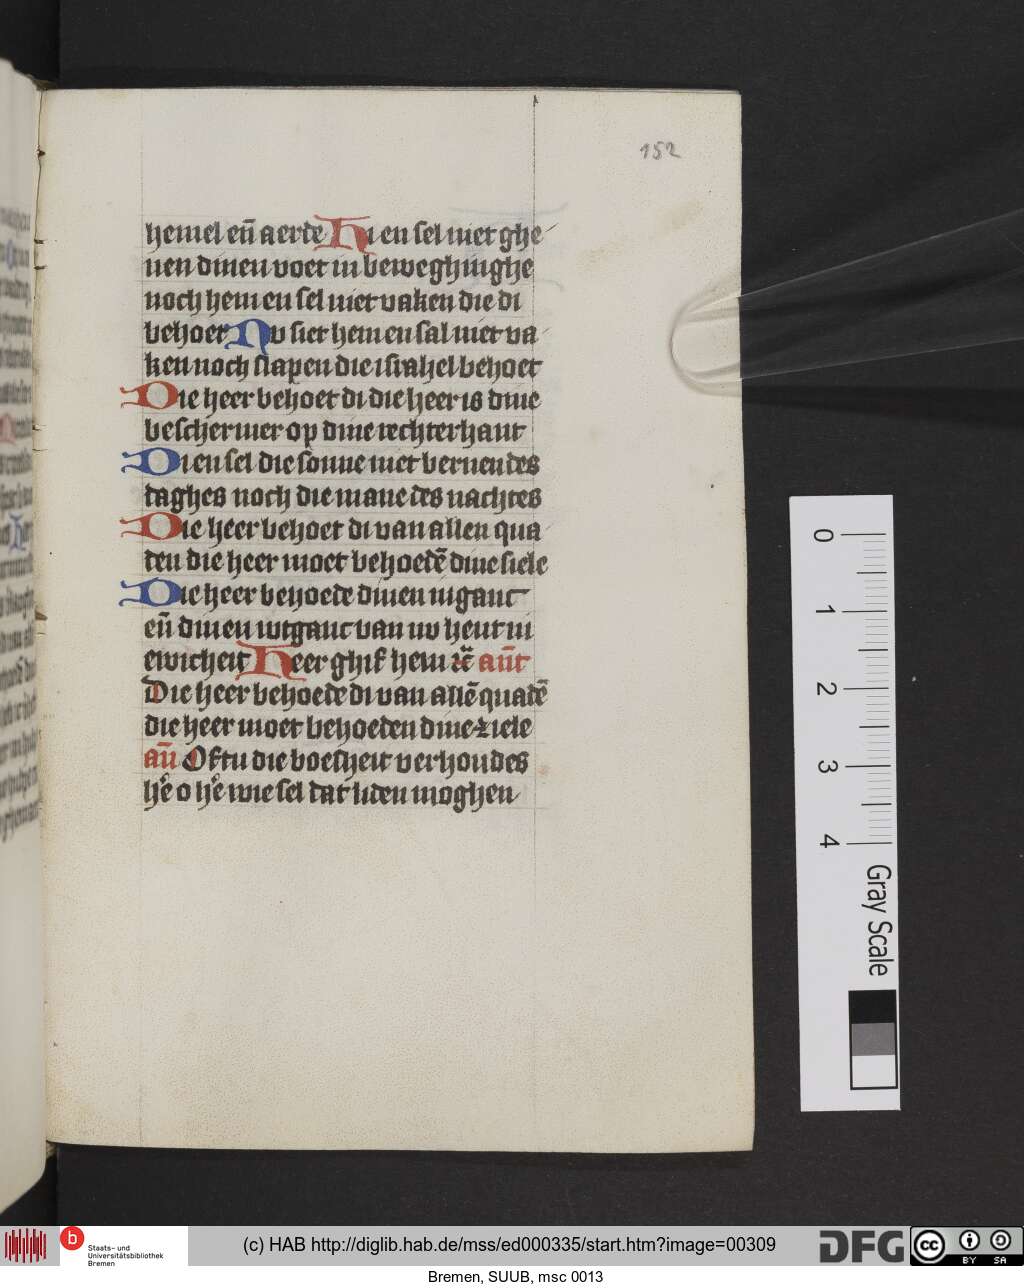 152
hemel en̄ aerde Hi en sel niet ghe
uen dinen voet in beweghinghe
noch hem en sel niet vaken die di
behoet Nv siet hem en sal niet va
ken noch slapen die israhel behoet
Die heer behoet di die heer is dine
beschermer op dine rechterhant
Di en sel die sonne niet bernen des
daghes noch die mane des nachtes
Die heer behoet di van allen qua
den die heer moet behoedē dine siele
Die heer behoede dinen ingant
en̄ dinen wtgant van nv hent in
ewicheit Heer ghif hem ꝛc̄ an̄t
Die heer behoede di van allē quadē
die heer moet behoeden dine ziele
an̄ Oftu die boesheit verhoudes
he͛ o he͛ wie sel dat liden moghen
0
1
2
3
4
Gray Scale
b Staats- und
Universitätsbibliothek
Bremen
(c) HAB http://diglib.hab.de/mss/ed000335/start.htm?image=00309
DFG
cc BY SA
Bremen, SUUB, msc 0013